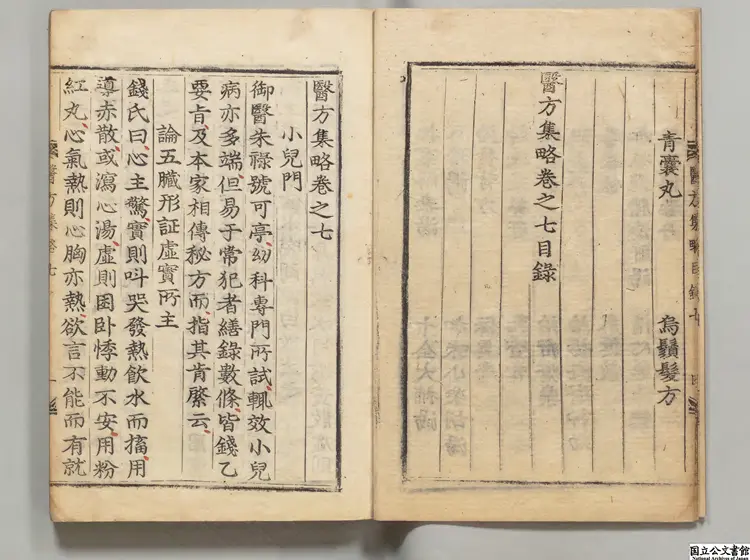 青囊丸 烏鬚髮方
醫方集略卷之七目錄
醫方集略卷之七
小兒門
御醫朱祿號可亭幼科專門所試輒效小兒
病亦多端但易于常犯者繕錄數條皆錢乙
要旨及本家相傳秘方而指其肯綮云
論五臟形証虛實所主
錢氏曰心主驚實則叫哭發熱飲水而搐用
導赤散或瀉心湯虛則困卧悸動不安用粉
紅丸心氣熱則心胸亦熱欲言不能而有就
醫方集略七
国立公文書館
National Archives of Japan